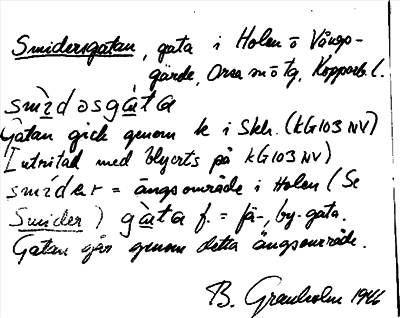 Smidersgatan, gata i Holen ö Vångs-
gärde, Orsa sn ö tg, Kopparb. l.
smìdəsgàta
Gatan gick genom k i Skh. (KG103 NV)
Inritad med blyerts på KG103 NV)
smídər = ängsområde i Holen (Se
Smider) gàta f. = fä-, by-gata.
Gatan går genom detta ängsområde.
B. Granholm 1946